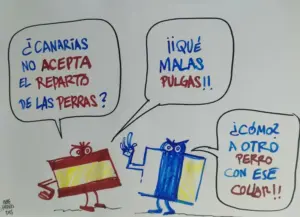 ¿CANARIAS
NO ACEPTA
EL REPARTO
DE LAS PERRAS?
¡¡QUÉ
MALAS
PULGAS!!
¿CÓMO?
A OTRO
PERRO
CON ESE
COLLAR!!